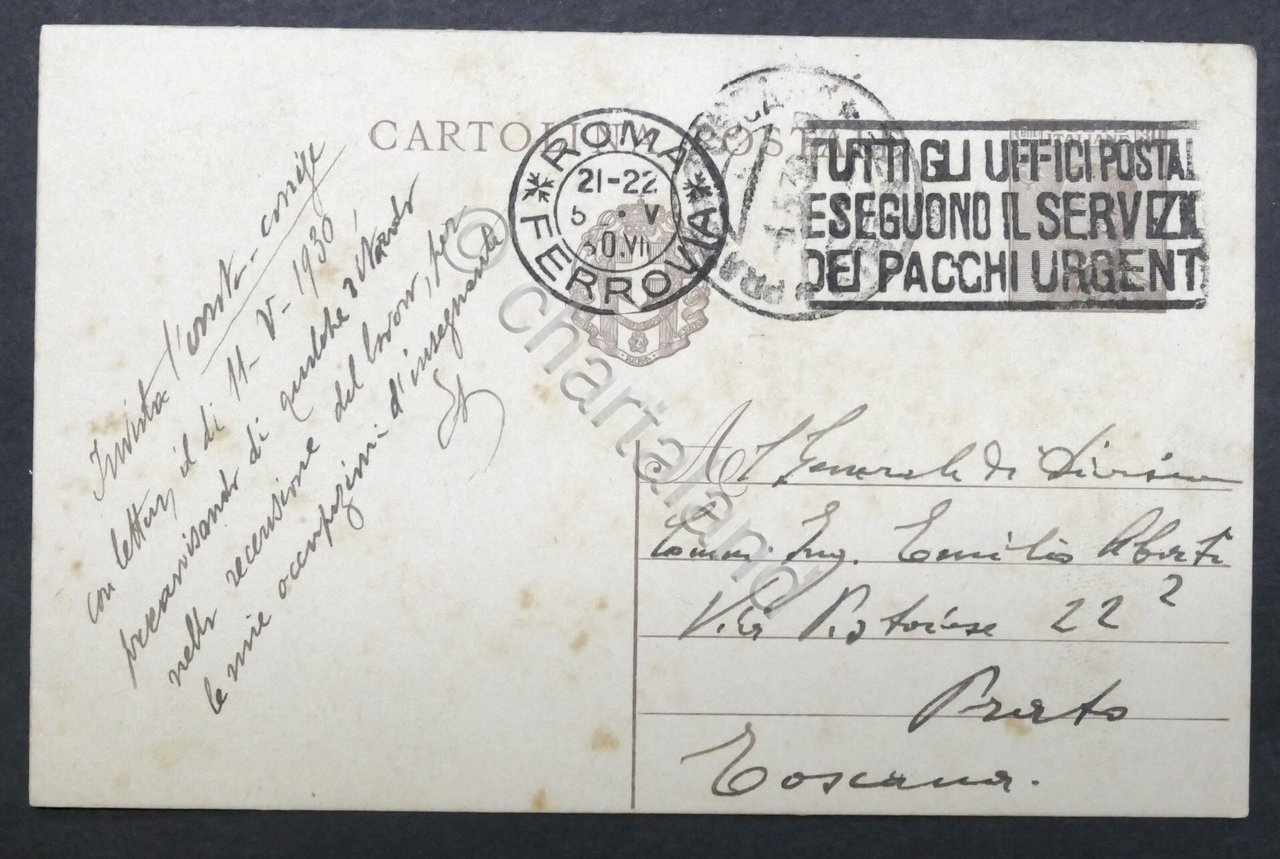 CARTOLINA POSTALE
ROMA FERROVIA
21-22
5 . V
30.VII
TUTTI GLI UFFICI POSTAL
ESEGUONO IL SERVIZIO
DEI PACCHI URGENTI
Inviata l'errata-corrige
con lettera il dì 11-V-1930
preavvisando di qualche ritardo
nella recensione del lavoro, per
le mie occupazioni d'insegnante
Al Generale di Divisione
Comm. Ing. Emilio Alberti
Via Pistoiese 22²
Prato
Toscana.
© chartaland